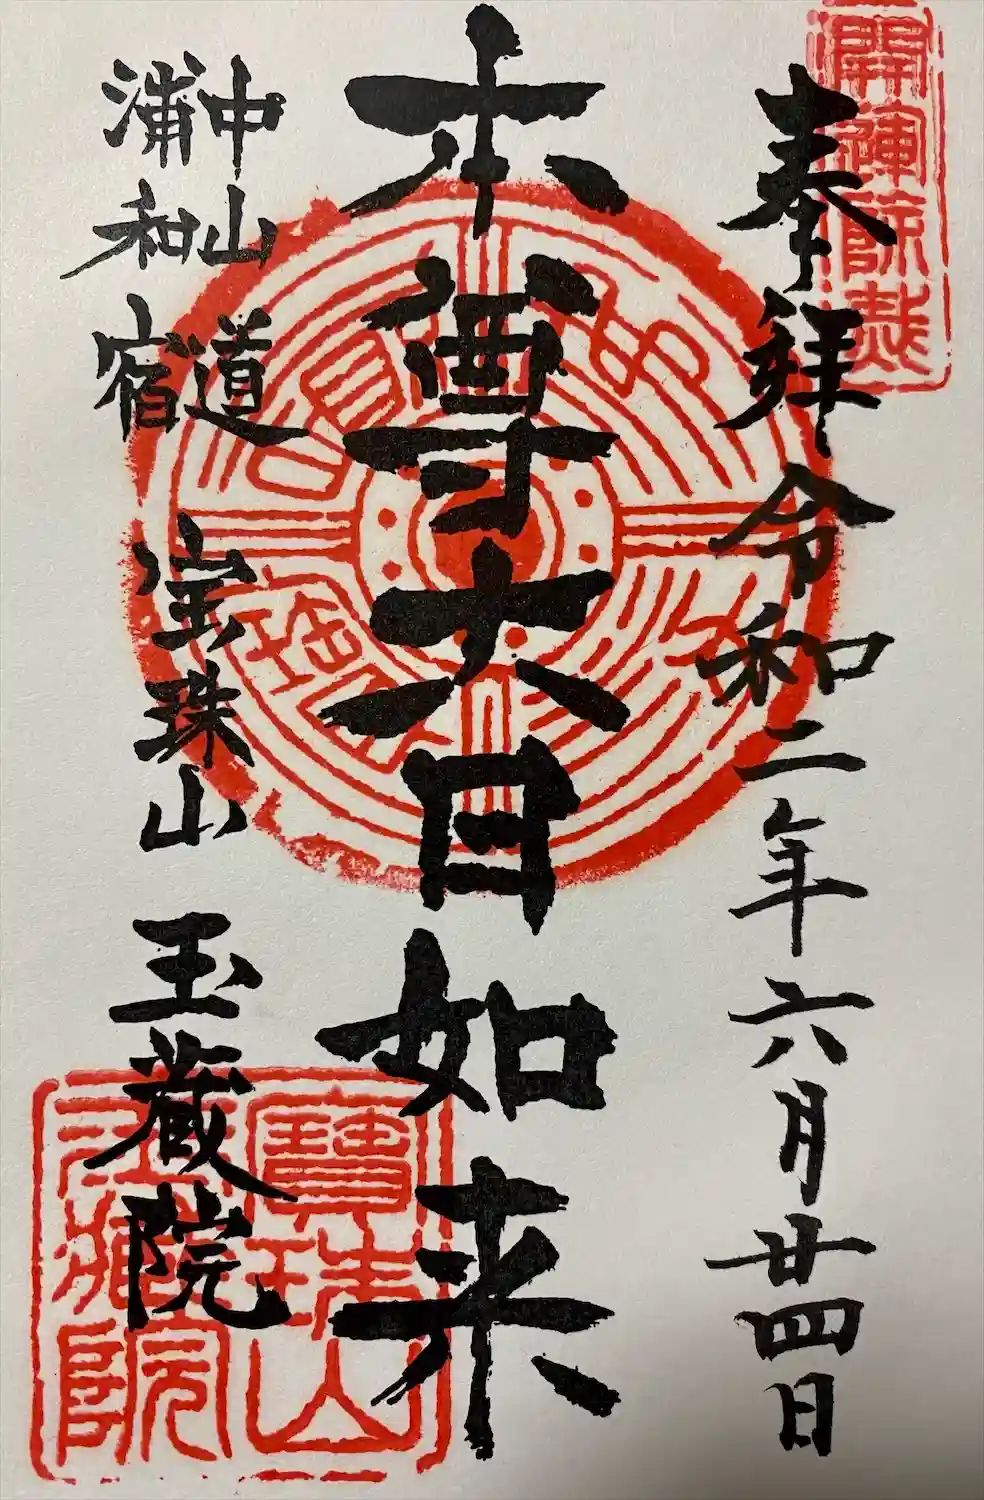 奉拝 令和二年六月廿四日
本尊大日如来
中山道
浦和宿
宝珠山 玉蔵院
開運除災
寶珠山
玉蔵院